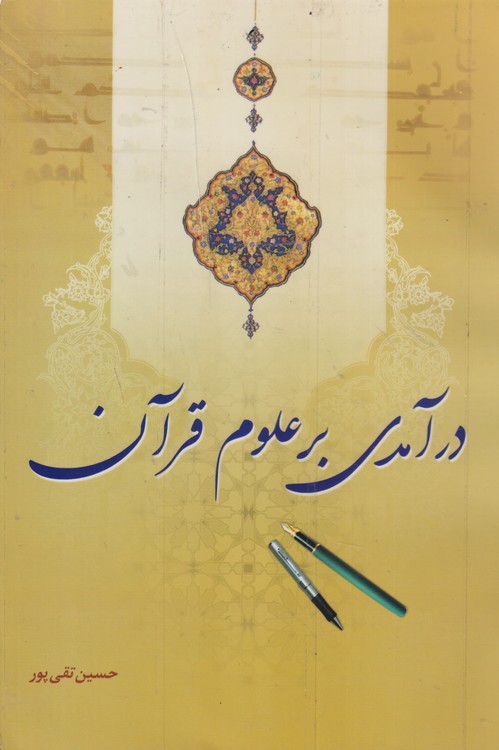 درآمدی بر علوم قرآن
حسین تقی پور